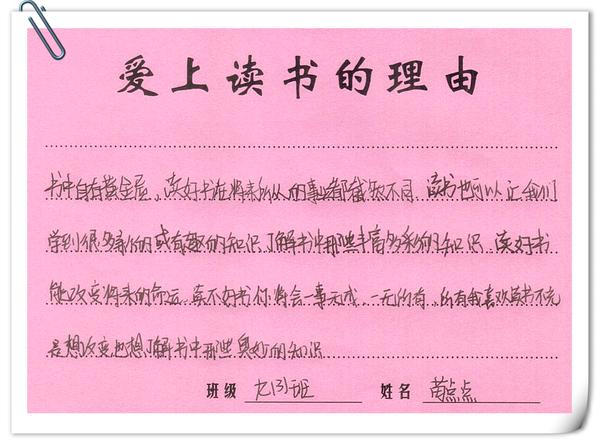 爱上读书的理由
书中自有黄金屋。读好书在将来你从的事业都截然不同。读书也可以让我们
学到很多新的或有趣的知识了解书中那些丰富多彩的知识。读好书
能改变将来的命运。读不好书你将会一事无成。一无所有。所有我喜欢读书不光
是想改变也想了解书中那些奥妙的知识
班级 七(3)班 姓名 苗点点